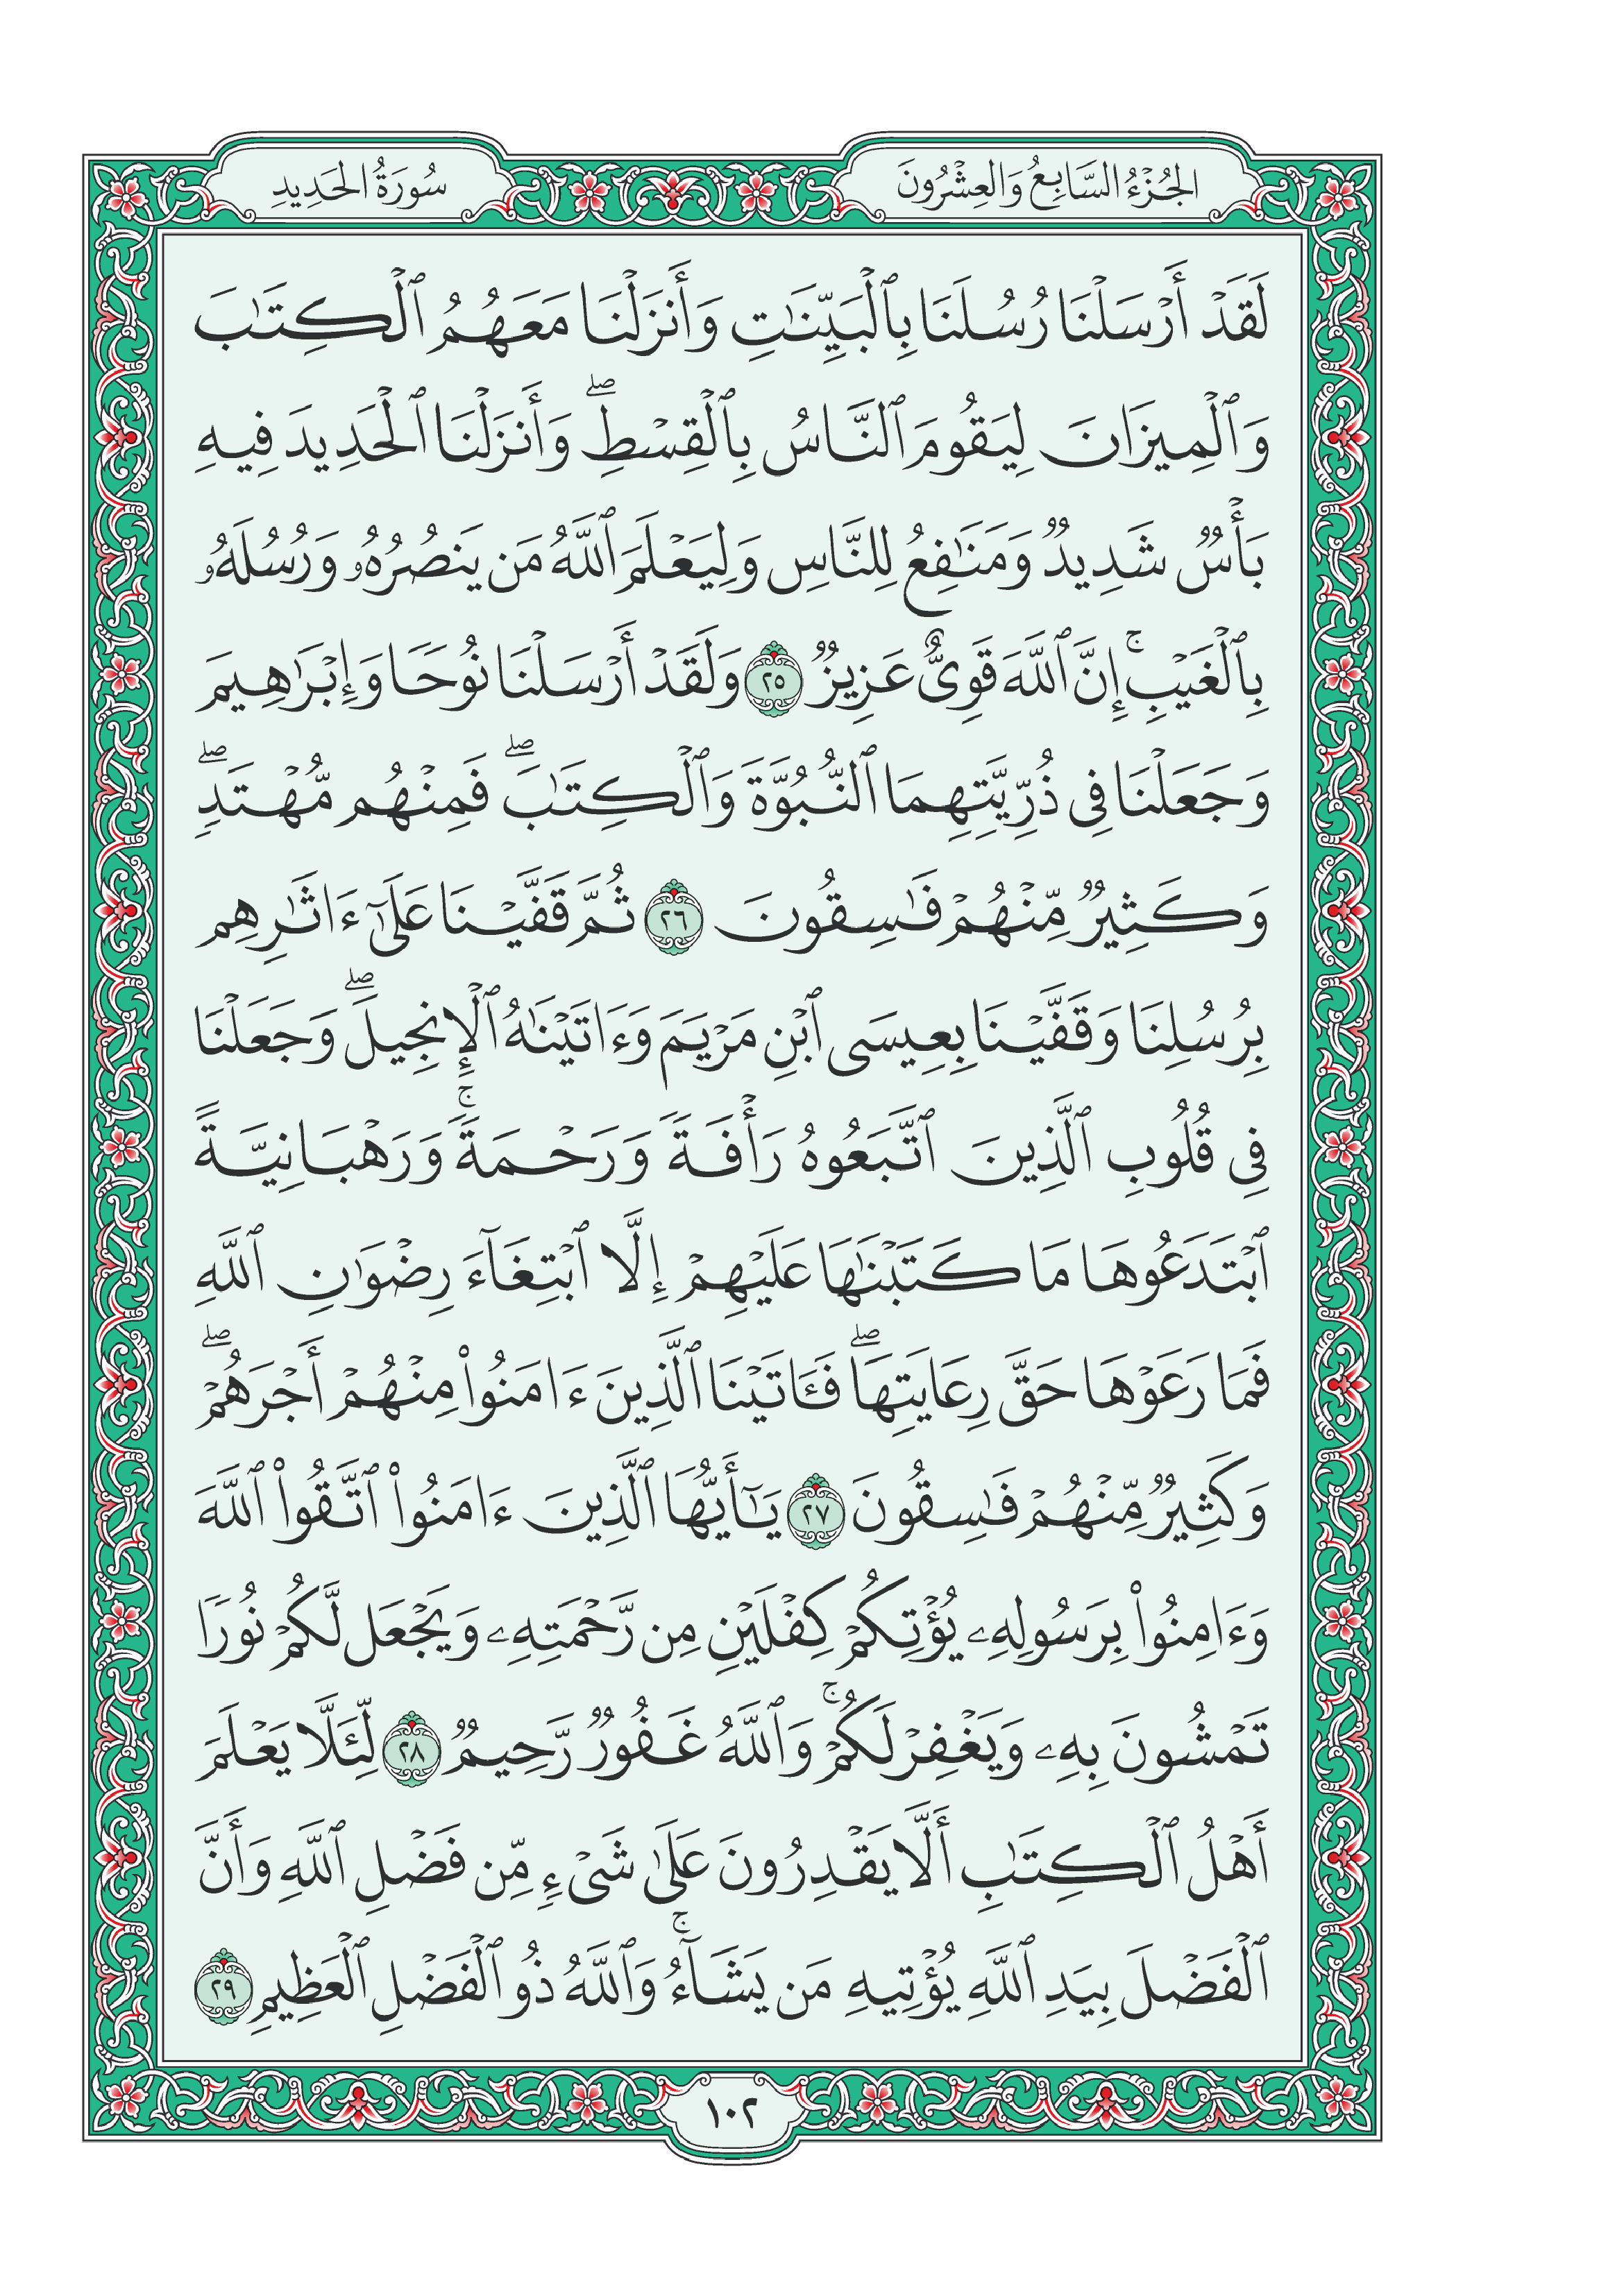 الجُزْءُ السَّابِعُ وَالعِشْرُونَ
سُورَةُ الحَدِيدِ
لَقَدۡ أَرۡسَلۡنَا رُسُلَنَا بِٱلۡبَيِّنَٰتِ وَأَنزَلۡنَا مَعَهُمُ ٱلۡكِتَٰبَ
وَٱلۡمِيزَانَ لِيَقُومَ ٱلنَّاسُ بِٱلۡقِسۡطِۖ وَأَنزَلۡنَا ٱلۡحَدِيدَ فِيهِ
بَأۡسٞ شَدِيدٞ وَمَنَٰفِعُ لِلنَّاسِ وَلِيَعۡلَمَ ٱللَّهُ مَن يَنصُرُهُۥ وَرُسُلَهُۥ
بِٱلۡغَيۡبِۚ إِنَّ ٱللَّهَ قَوِيٌّ عَزِيزٞ ٢٥ وَلَقَدۡ أَرۡسَلۡنَا نُوحٗا وَإِبۡرَٰهِيمَ
وَجَعَلۡنَا فِي ذُرِّيَّتِهِمَا ٱلنُّبُوَّةَ وَٱلۡكِتَٰبَۖ فَمِنۡهُم مُّهۡتَدٖۖ
وَكَثِيرٞ مِّنۡهُمۡ فَٰسِقُونَ ٢٦ ثُمَّ قَفَّيۡنَا عَلَىٰٓ ءَاثَٰرِهِم
بِرُسُلِنَا وَقَفَّيۡنَا بِعِيسَى ٱبۡنِ مَرۡيَمَ وَءَاتَيۡنَٰهُ ٱلۡإِنجِيلَۖ وَجَعَلۡنَا
فِي قُلُوبِ ٱلَّذِينَ ٱتَّبَعُوهُ رَأۡفَةٗ وَرَحۡمَةٗۚ وَرَهۡبَانِيَّةً
ٱبۡتَدَعُوهَا مَا كَتَبۡنَٰهَا عَلَيۡهِمۡ إِلَّا ٱبۡتِغَآءَ رِضۡوَٰنِ ٱللَّهِ
فَمَا رَعَوۡهَا حَقَّ رِعَايَتِهَاۖ فَـَٔاتَيۡنَا ٱلَّذِينَ ءَامَنُواْ مِنۡهُمۡ أَجۡرَهُمۡۖ
وَكَثِيرٞ مِّنۡهُمۡ فَٰسِقُونَ ٢٧ يَٰٓأَيُّهَا ٱلَّذِينَ ءَامَنُواْ ٱتَّقُواْ ٱللَّهَ
وَءَامِنُواْ بِرَسُولِهِۦ يُؤۡتِكُمۡ كِفۡلَيۡنِ مِن رَّحۡمَتِهِۦ وَيَجۡعَل لَّكُمۡ نُورٗا
تَمۡشُونَ بِهِۦ وَيَغۡفِرۡ لَكُمۡۚ وَٱللَّهُ غَفُورٞ رَّحِيمٞ ٢٨ لِّئَلَّا يَعۡلَمَ
أَهۡلُ ٱلۡكِتَٰبِ أَلَّا يَقۡدِرُونَ عَلَىٰ شَيۡءٖ مِّن فَضۡلِ ٱللَّهِ وَأَنَّ
ٱلۡفَضۡلَ بِيَدِ ٱللَّهِ يُؤۡتِيهِ مَن يَشَآءُۚ وَٱللَّهُ ذُو ٱلۡفَضۡلِ ٱلۡعَظِيمِ ٢٩
١٠٢